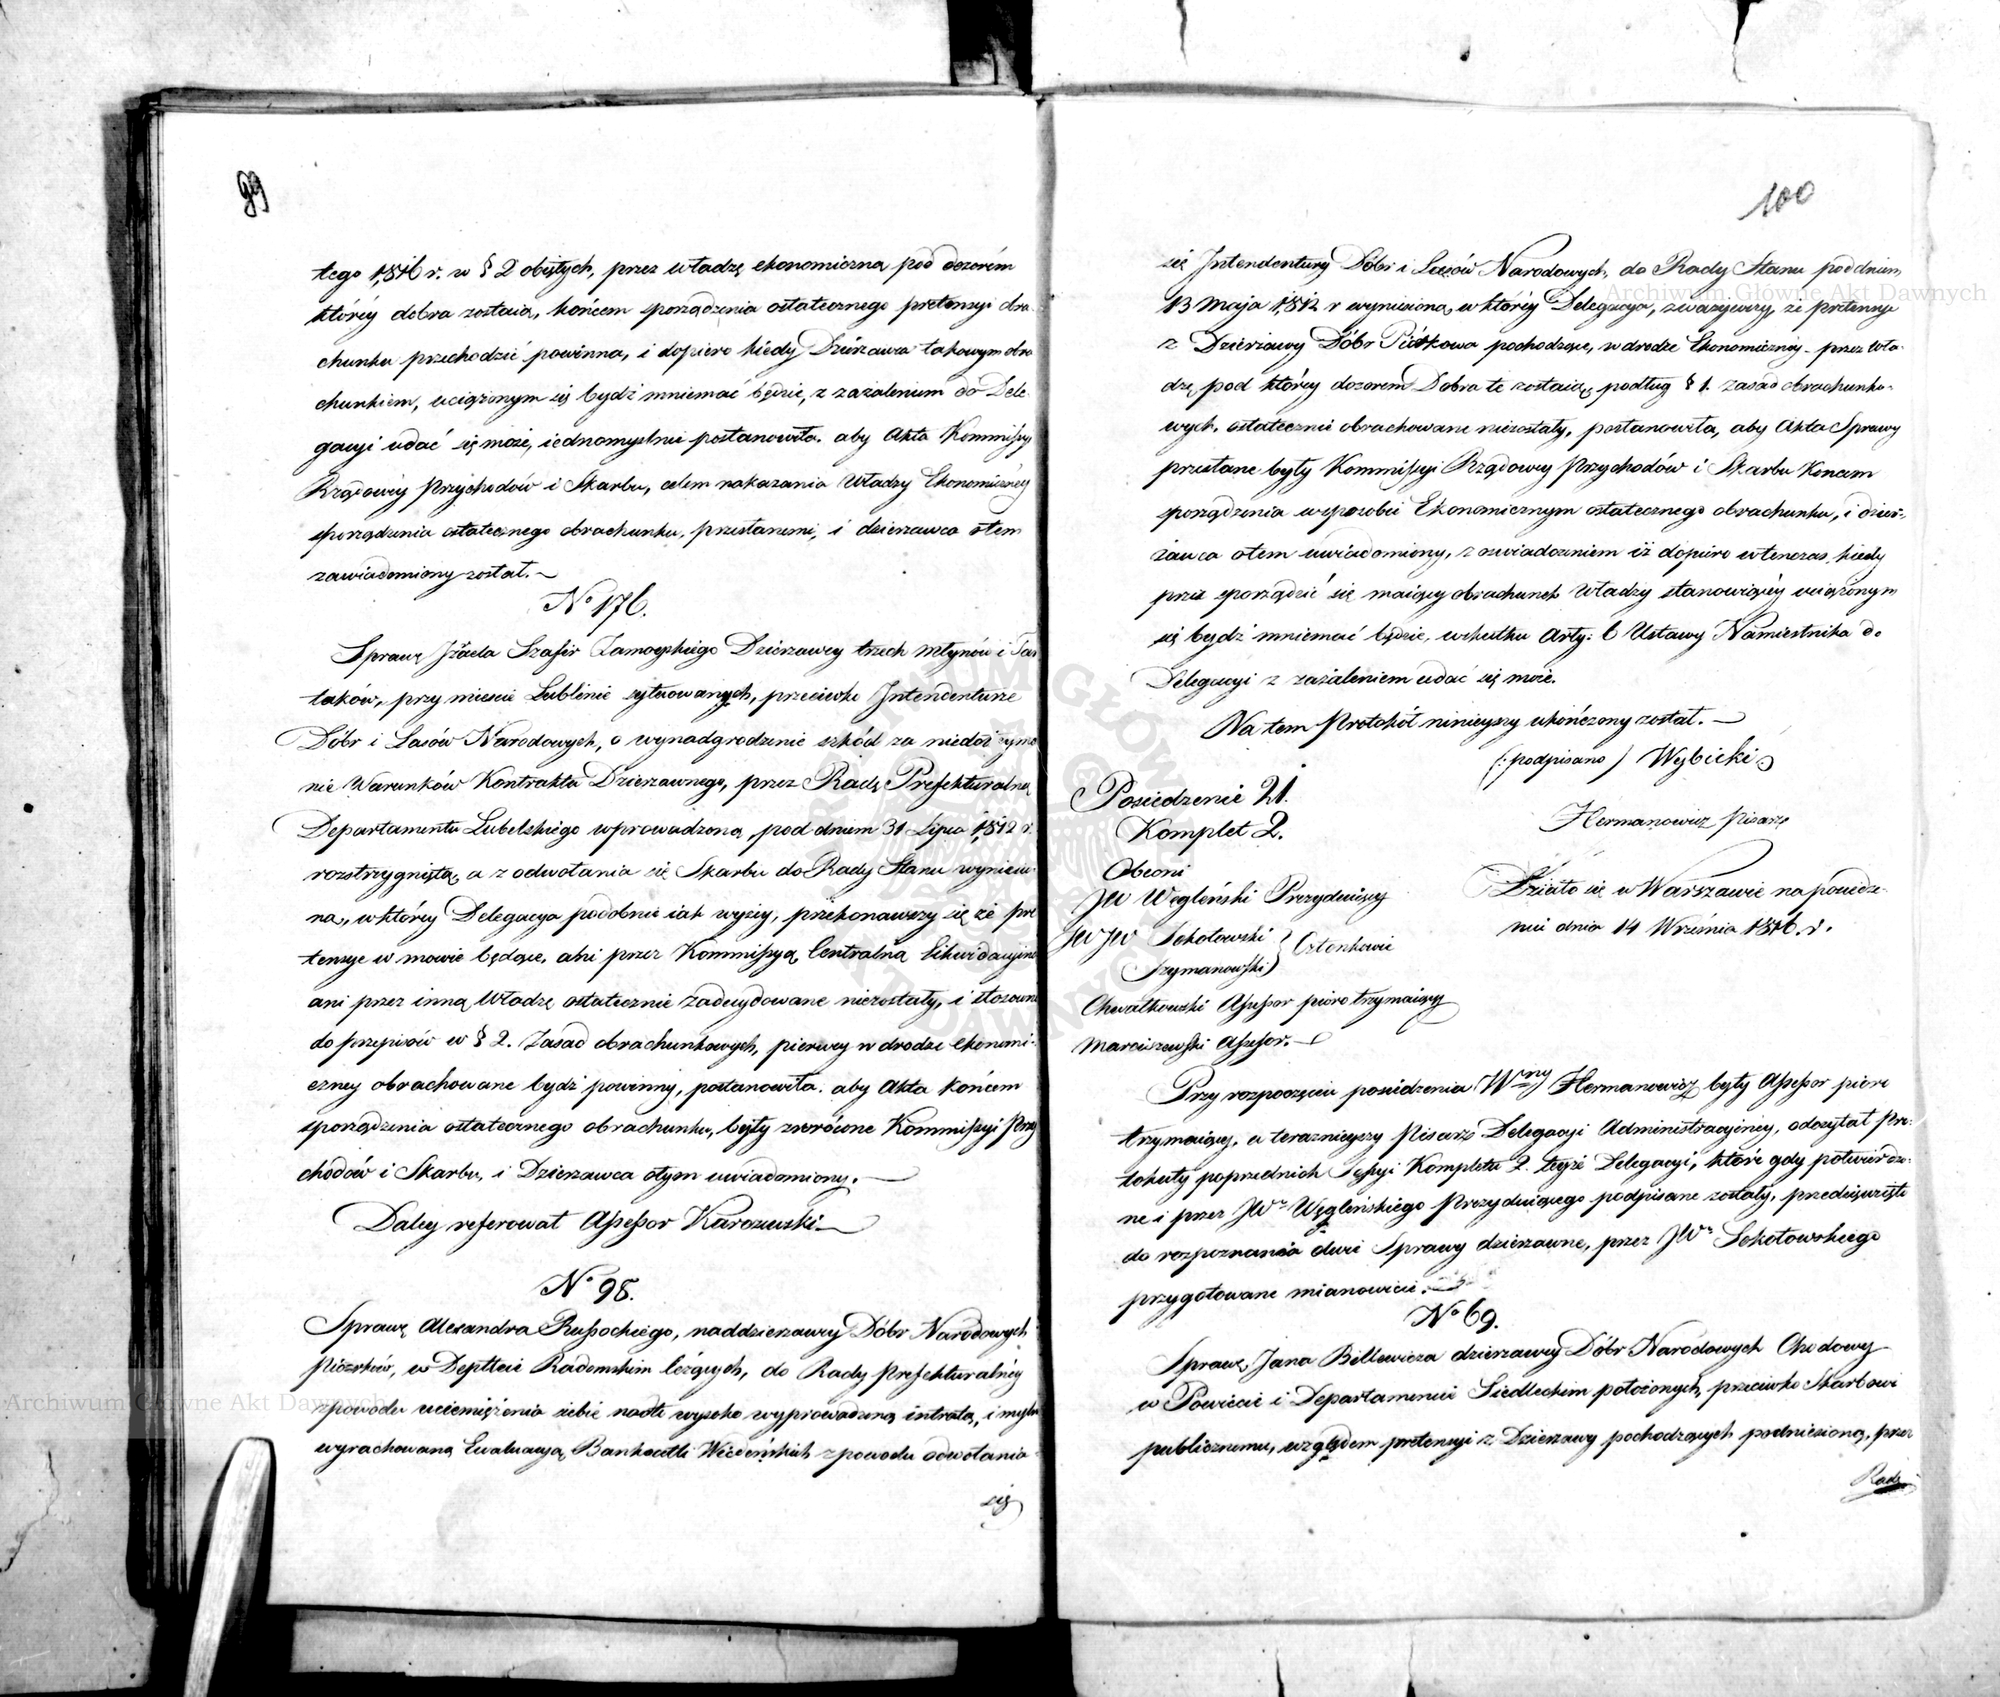 99
tego 1816 r. w § 2 obiętych, przez władzę ekonomiczną pod dozorem
któréy dobra zostaią, końcem sporządzenia ostatecznego pretensyi obra
chunku przechodzić powinna, i dopiero kiedy Dzierżawca takowym obra
chunkiem, uciążonym się bydź mniemać będzie, z zażaleniem do Dele
gacyi udać się może, iednomyślnie postanowiła. aby Akta Kommissyi
Rządowéy Przychodów i Skarbu, celem nakazania Władzy Ekonomicznéy
sporządzenia ostatecznego obrachunku, przesłanemi, i dzierzawca otem
zawiadomiony został.
No 176.
Sprawę Szafir Zamoyskiego Dzierzawcy trzech młynów i Tar
taków, przy mieście Lublinie sytuowanych, przeciwko Intendenturze
Dóbr i Lasów Narodowych, o wynadgrodzenie szkód za niedotrzyma
nie Warunków Kontraktu Dzierzawnego, przez Radę Prefekturalną
Departamentu Lubelskiego wprowadzoną, pod dniem 31 Lipca 1812 r.
rozstrzygniętą, a z odwołania się Skarbu do Rady Stanu wyniesio
na, w któréy Delegacya podobnie iak wyżéy, przekonawszy się że pre
tensye w mowie będące, ani przez Kommissyą Centralną Likwidacyiną
ani przez inną Władzę ostatecznie zadecydowane niezostały, i stosownie
do przepisów w § 2. Zasad obrachunkowych, pierwéy w drodze ekonomi
cznéy obrachowane bydź powinny, postanowiła. aby Akta końcem
sporządzenia ostatecznego obrachunku, były zwrócone Kommissyi Przy
chodów i Skarbu, i Dzierzawca otym uwiadomiony.
Daléy referował Assessor Karczewski
No 98.
Sprawę Alexandra Russockiego, naddzierzawcy Dóbr Narodowych
Piotrków, w Deptcie Radomskim leżących, do Rady Prefekturalnéy
zpowodu uciemiężenia siebie nadto wysoko wyprowadzoną intratą, i mylnie
wyrachowaną Ewaluacyą Bankocetli Wiedeńskich zpowodu odwołania
się
100
się Intendentury Dóbr i Lasów Narodowych, do Rady Stanu pod dniem
13 Maja 1812 r wyniesioną, w któréy Delegacya, zważywszy, że pretensye
z Dzierżawy Dóbr Piotrkowa pochodzące, w drodze Ekonomicznéy przez Wła
dzę pod któréy dozorem Dobra te zostaią, podług § 1. zasad obrachunko
wych, ostatecznie obrachowane niezostały, postanowiła, aby Akta Sprawy
przesłane były Kommissyi Rządowéy Przychodów i Skarbu Koncem
sporządzenia wsposobie Ekonomicznym ostatecznego obrachunku, i dzier
żawca otem uwiadomiony, z oswiadczeniem iż dopiero wtenczas, kiedy
przez sporządzić się maiący obrachunek Władzy stanowiącéy uciążonym
się bydź mniemać będzie, wskutku Arty: 6 Ustawy Namiestnika do
Delegacyi z zażaleniem udać się może.
Na tem Protokół ninieyszy ukończony został.
(: podpisano) Wybicki
Hermanowicz Pisarz
Posiedzenie 21.
Komplet 2.
Obecni
JW Węgleński Prezyduiący
JWJW Sokołowski
Szymanowski } Członkowie
Chwalkowski Assessor pioro trzymaiący
Marciszewski Assessor.
Działo się w Warszawie na posiedze
niu dnia 14 Września 1816. r.
Przy rozpoczęciu posiedzenia Wny Hermanowicz były Assessor pioro
trzymaiący, a teraznieyszy Pisarz Delegacyi Administracyinéy, odczytał Pro
tokuły poprzednich Sessyi Kompletu 2. teyże Delegacyi, które gdy potwierdzo
ne i przez JWo Węgleńskiego Prezyduiącego podpisane zostały, przedsięwzięto
do rozpoznania dwie Sprawy dzierzawne, przez JWo Sokołowskiego
przygotowane mianowicie.
No 69.
Sprawę Jana Billewicza dzierzawcy Dóbr Narodowych Chodowy
w Powiecie i Departamencie Siedleckim położonych, przeciwko Skarbowi
publicznemu, względem pretensyi z Dzierzawy pochodzących podniesioną, przez
Radę
Archiwum Główne Akt Dawnych
Archiwum Główne Akt Dawnych